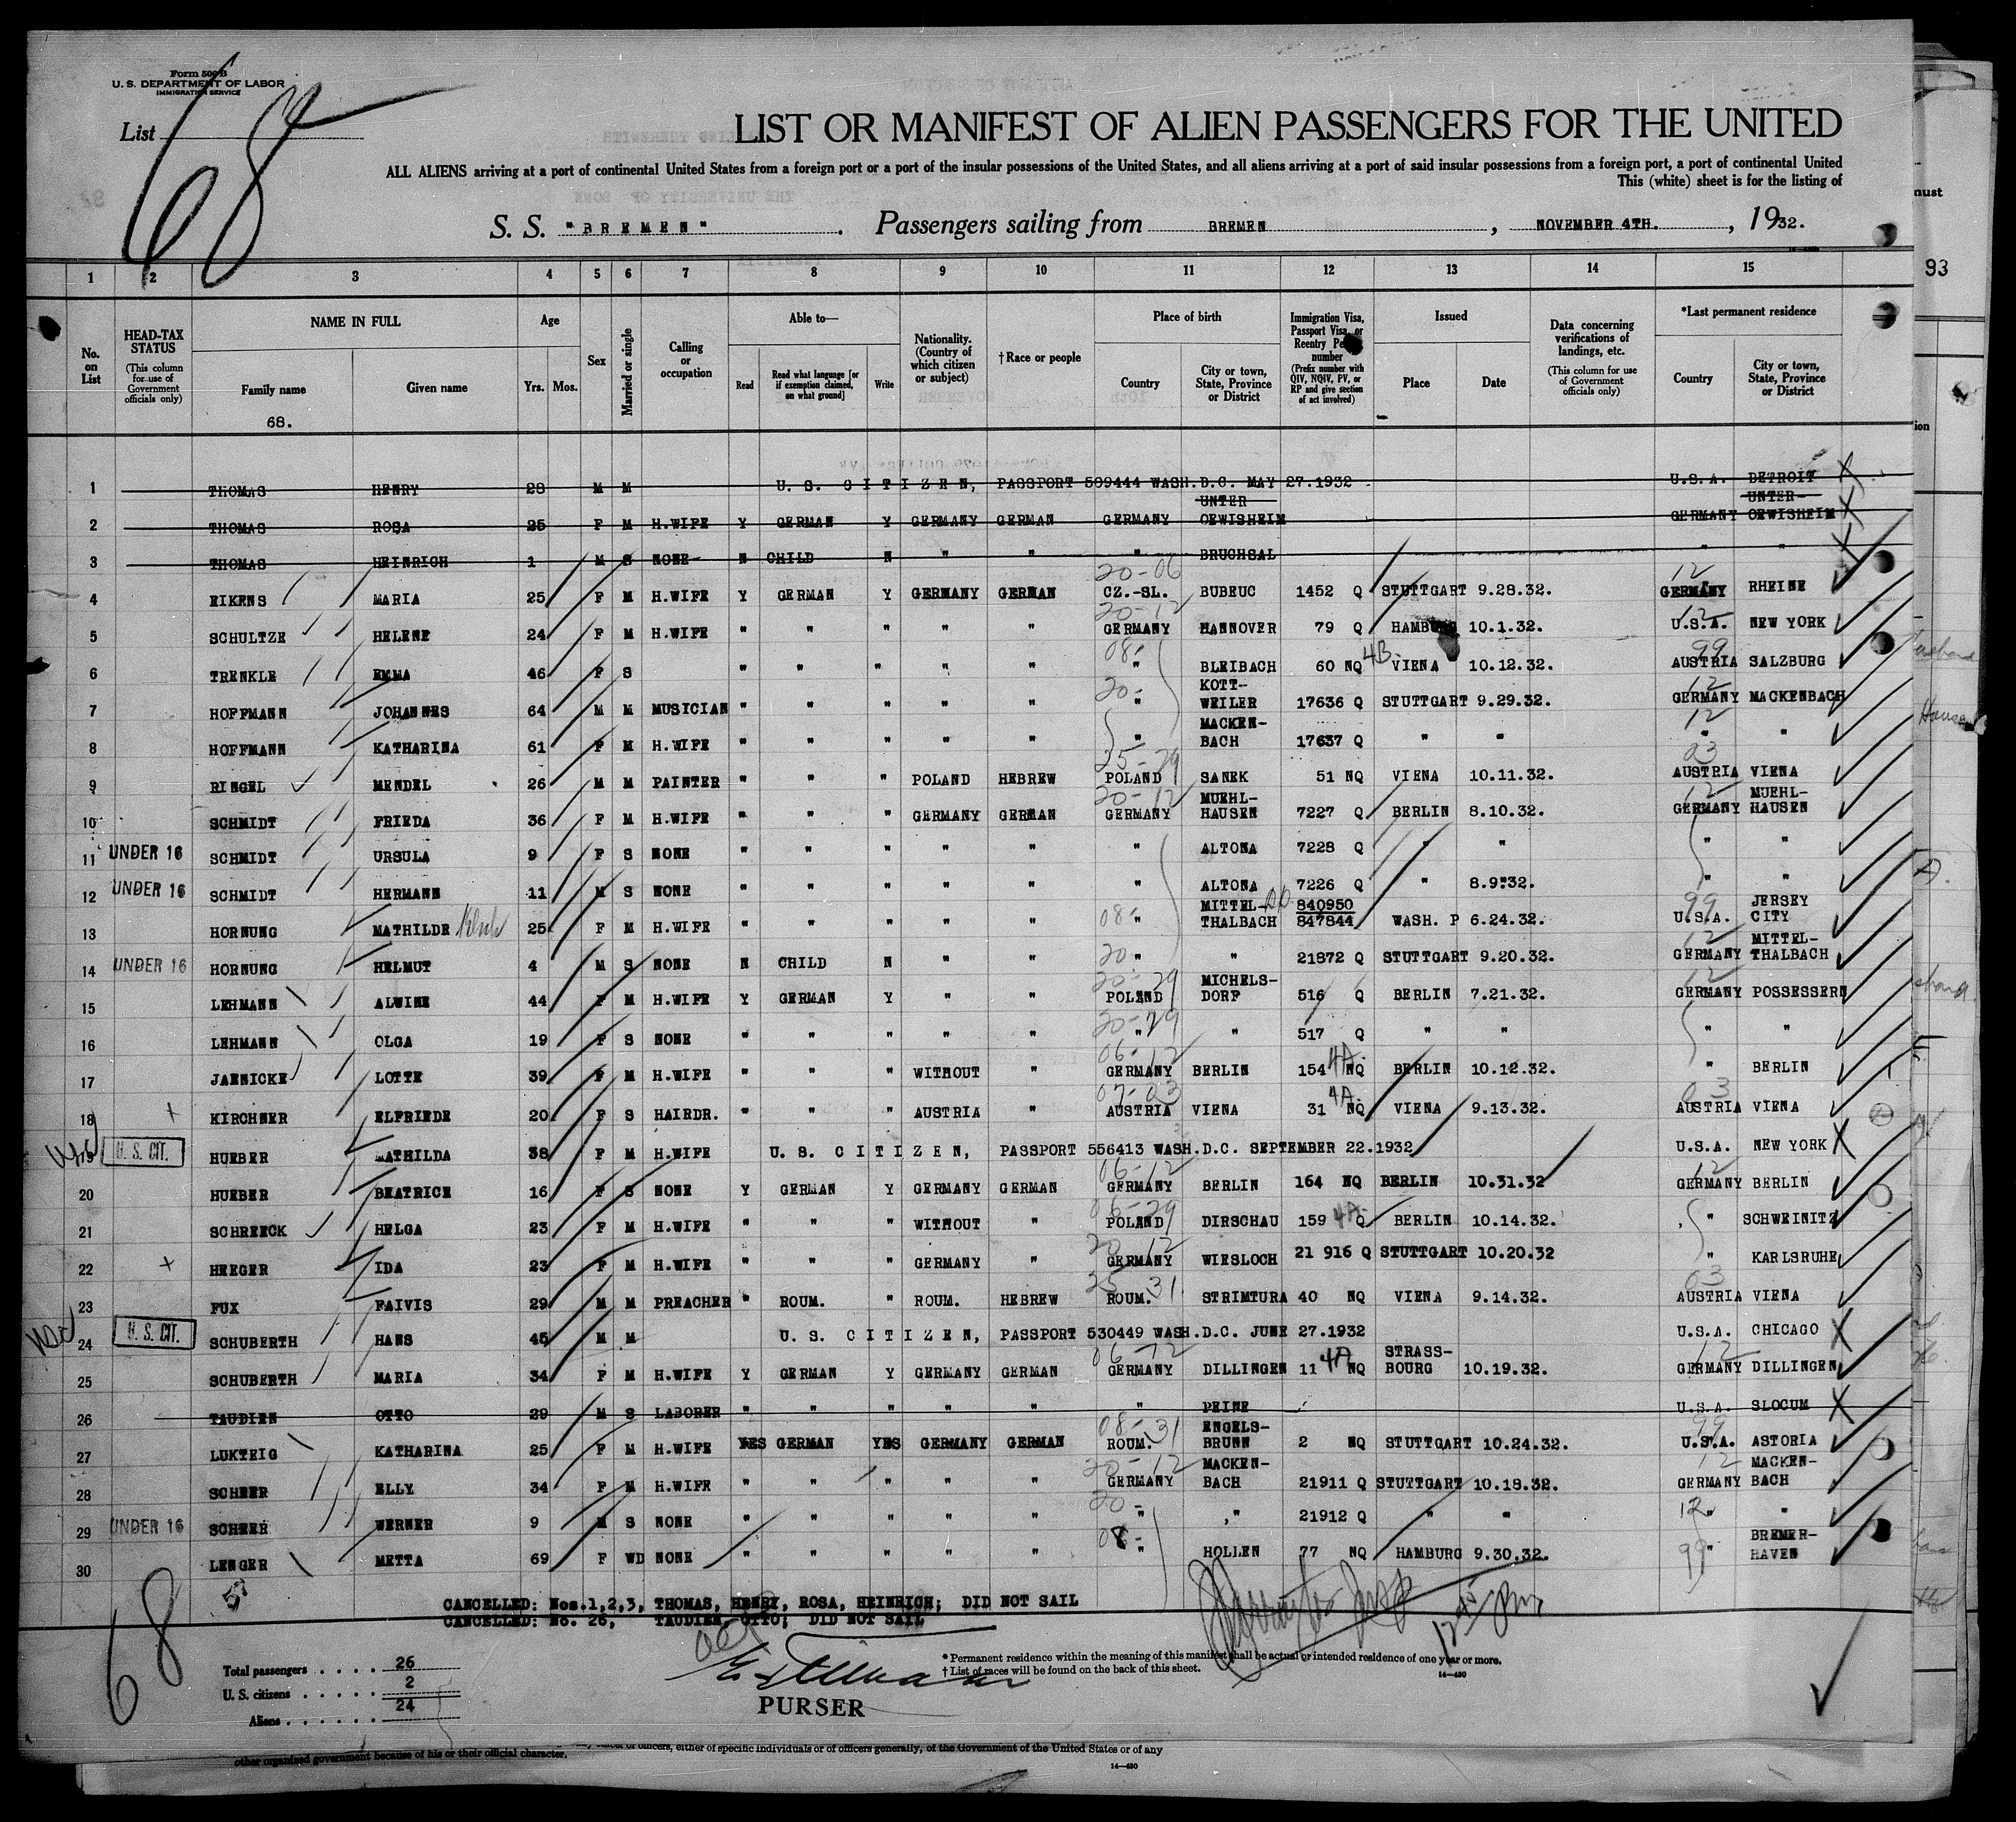 Form 500 B
U. S. DEPARTMENT OF LABOR
IMMIGRATION SERVICE
List 68
LIST OR MANIFEST OF ALIEN PASSENGERS FOR THE UNITED
ALL ALIENS arriving at a port of continental United States from a foreign port or a port of the insular possessions of the United States, and all aliens arriving at a port of said insular possessions from a foreign port, a port of continental United
This (white) sheet is for the listing of
S. S. "BREMEN". Passengers sailing from BREMEN, NOVEMBER 4TH., 1932.
1 2 3 4 5 6 7 8 9 10 11 12 13 14 15 93
No. on List
HEAD-TAX STATUS (This column for use of Government officials only)
NAME IN FULL
Family name
Given name
68.
Age
Yrs. Mos.
Sex
Married or single
Calling or occupation
Able to—
Read
Read what language [or if exemption claimed, on what ground]
Write
Nationality. (Country of which citizen or subject)
†Race or people
Place of birth
Country
City or town, State, Province or District
Immigration Visa, Passport Visa, or Reentry Permit number (Prefix number with QIV, NQIV, PV, or RP and give section of act involved)
Issued
Place
Date
Data concerning verifications of landings, etc. (This column for use of Government officials only)
*Last permanent residence
Country
City or town, State, Province or District
1 THOMAS HENRY 28 M M U. S. CITIZEN, PASSPORT 509444 WASH.D.C. MAY 27.1932 U.S.A. DETROIT
2 THOMAS ROSA 25 F M H.WIFE Y GERMAN Y GERMANY GERMAN GERMANY UNTER OEWISHEIM GERMANY UNTER- OEWISHEIM
3 THOMAS HEINRICH 1 M S NONE N CHILD N " " " BRUCHSAL " "
4 EIKENS MARIA 25 F M H.WIFE Y GERMAN Y GERMANY GERMAN 20-06 CZ.-SL. BUBEUC 1452 Q STUTTGART 9.28.32. 12 GERMANY RHEINE
5 SCHULTZE HELENE 24 F M H.WIFE " " " " " 20-12 GERMANY HANNOVER 79 Q HAMBURG 10.1.32. 12 U.S.A. NEW YORK
6 TRENKLE EMMA 46 F S " " " " " 08- " BLEIBACH 60 NQ 4B VIENA 10.12.32. 99 AUSTRIA SALZBURG
7 HOFFMANN JOHANNES 64 M M MUSICIAN " " " " " 20- " KOTT- WEILER 17636 Q STUTTGART 9.29.32. 12 GERMANY MACKENBACH
8 HOFFMANN KATHARINA 61 F M H.WIFE " " " " " " MACKEN- BACH 17637 Q " " 12 " "
9 RINGEL MENDEL 26 M M PAINTER " " " POLAND HEBREW 25-29 POLAND SANEK 51 NQ VIENA 10.11.32. 03 AUSTRIA VIENA
10 SCHMIDT FRIEDA 36 F M H.WIFE " " " GERMANY GERMAN 20-12 GERMANY MUEHL- HAUSEN 7227 Q BERLIN 8.10.32. 12 GERMANY MUEHL- HAUSEN
11 UNDER 16 SCHMIDT URSULA 9 F S NONE " " " " " " ALTONA 7228 Q " " " "
12 UNDER 16 SCHMIDT HERMANN 11 M S NONE " " " " " " ALTONA 7226 Q " 8.9.32. " "
13 HORNUNG MATHILDE 25 F M H.WIFE " " " " " 08- " MITTEL- THALBACH 840950 847844 WASH. P 6.24.32. 99 U.S.A. JERSEY CITY
14 UNDER 16 HORNUNG HELMUT 4 M S NONE N CHILD N " " 20 " " 21872 Q STUTTGART 9.20.32. 12 GERMANY MITTEL- THALBACH
15 LEHMANN ALWINE 44 F M H.WIFE Y GERMAN Y " " 20-29 POLAND MICHELS- DORF 516 Q BERLIN 7.21.32. 12 GERMANY POSSESSERN
16 LEHMANN OLGA 19 F S NONE " " " " " 20-29 " " 517 Q " " " "
17 JAENICKE LOTTE 39 F M H.WIFE " " " WITHOUT " 06-12 GERMANY BERLIN 154 4A NQ BERLIN 10.12.32. " BERLIN
18 KIRCHNER ELFRIEDE 20 F S HAIRDR. " " " AUSTRIA " 07-03 AUSTRIA VIENA 31 4A NQ VIENA 9.13.32. 03 AUSTRIA VIENA
19 U. S. CIT. HUEBER MATHILDA 38 F M H.WIFE U. S. CITIZEN, PASSPORT 556413 WASH.D.C. SEPTEMBER 22.1932 U.S.A. NEW YORK
20 HUEBER BEATRICE 16 F S NONE Y GERMAN Y GERMANY GERMAN 06-12 GERMANY BERLIN 164 NQ BERLIN 10.31.32 12 GERMANY BERLIN
21 SCHREECK HELGA 23 F M H.WIFE " " " WITHOUT " 06-29 POLAND DIRSCHAU 159 4A Q BERLIN 10.14.32. " SCHWEINITZ
22 HEEGER IDA 23 F M H.WIFE " " " GERMANY " 20-12 GERMANY WIESLOCH 21 916 Q STUTTGART 10.20.32 " KARLSRUHE
23 FUX FAIVIS 29 M M PREACHER " ROUM. " ROUM. HEBREW 25-31 ROUM. STRIMTURA 40 NQ VIENA 9.14.32. 03 AUSTRIA VIENA
24 U. S. CIT. SCHUBERTH HANS 45 M M U. S. CITIZEN, PASSPORT 530449 WASH.D.C. JUNE 27.1932 U.S.A. CHICAGO
25 SCHUBERTH MARIA 34 F M H.WIFE Y GERMAN Y GERMANY GERMAN 06-12 GERMANY DILLINGEN 11 4A NQ STRASS- BOURG 10.19.32. 12 GERMANY DILLINGEN
26 TAUDIEN OTTO 29 M S LABORER " " " " " " PEINE U.S.A. SLOCUM
27 LUKTEIG KATHARINA 25 F M H.WIFE YES GERMAN YES GERMANY GERMAN 08-31 ROUM. ENGELS- BRUNN 2 NQ STUTTGART 10.24.32. 99 U.S.A. ASTORIA
28 SCHEER ELLY 34 F M H.WIFE " " " " " 20-12 GERMANY MACKEN- BACH 21911 Q STUTTGART 10.18.32. 12 GERMANY MACKEN- BACH
29 UNDER 16 SCHEER WERNER 9 M S NONE " " " " " 20- " " 21912 Q " " 12 " "
30 LENGER METTA 69 F WD NONE " " " " " 08- " HOLLEN 77 NQ HAMBURG 9.30.32. 99 " BREMER- HAVEN
CANCELLED: Nos.1,2,3, THOMAS, HENRY, ROSA, HEINRICH; DID NOT SAIL
CANCELLED: No. 26, TAUDIEN, OTTO; DID NOT SAIL
68
Total passengers . . . . 26
U. S. citizens . . . . . 2
Aliens . . . . . . 24
PURSER
* Permanent residence within the meaning of this manifest shall be actual or intended residence of one year or more.
† List of races will be found on the back of this sheet.
14—430
other organized government because of his or their official character.
officers, either of specific individuals or of officers generally, of the Government of the United States or of any
14—430